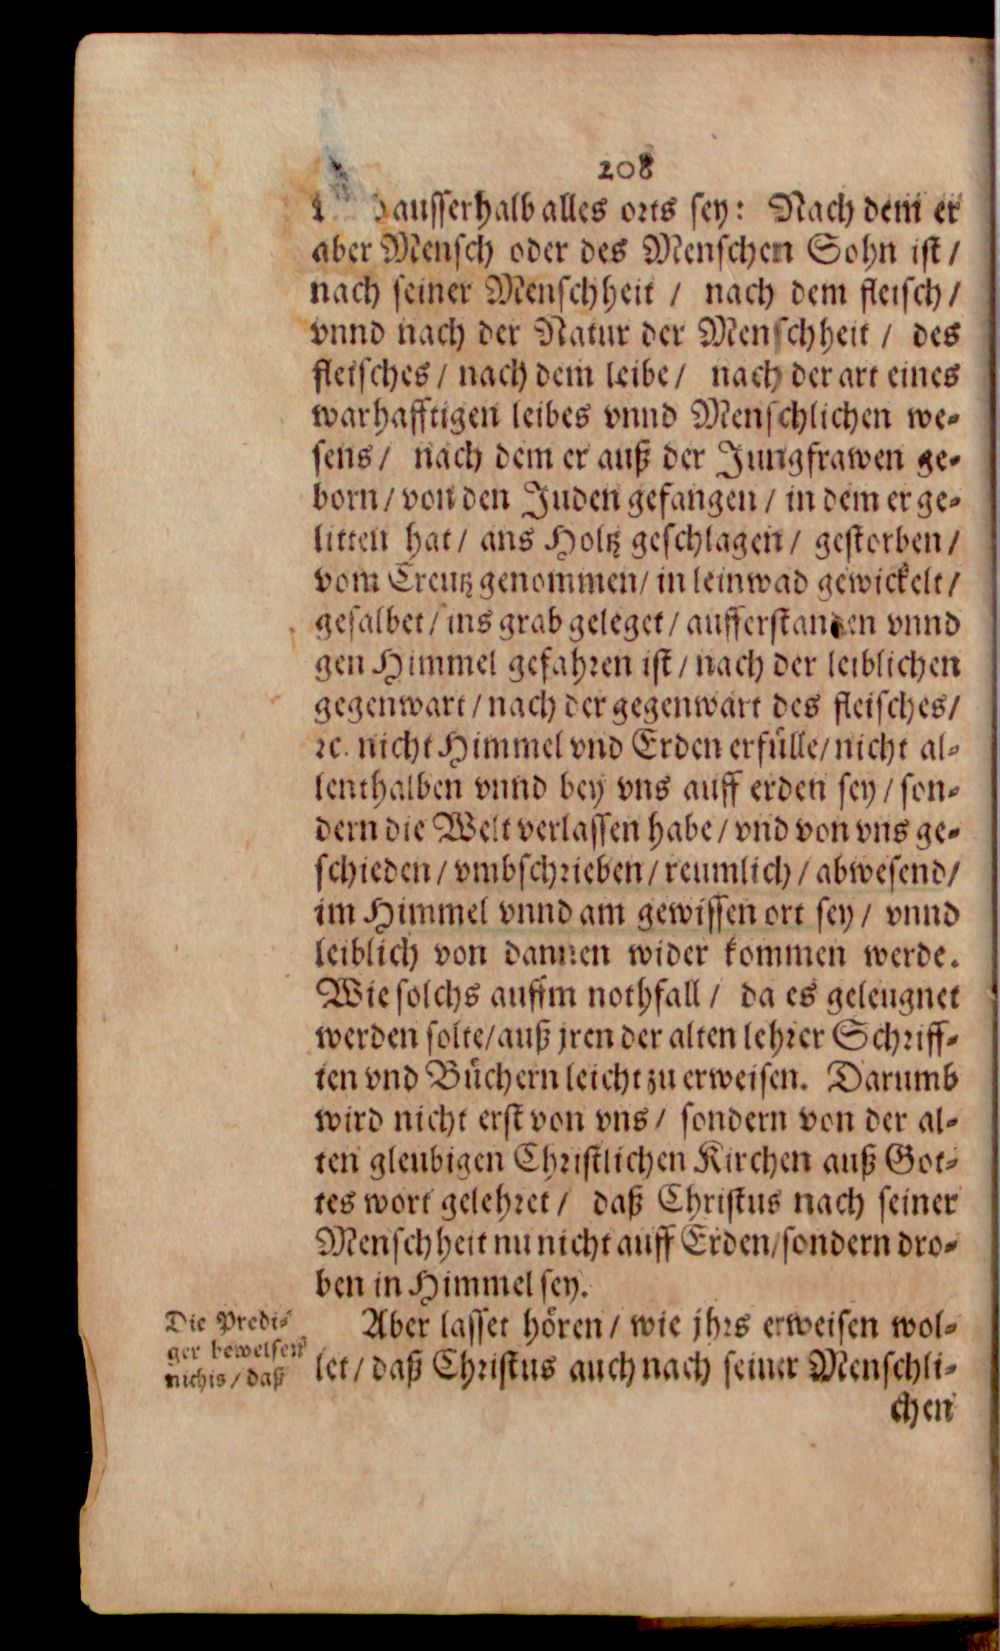 208
ausserhalb alles orts sey: Nach dem er
aber Mensch oder des Menschen Sohn ist/
nach seiner Menschheit / nach dem fleisch/
vnnd nach der Natur der Menschheit / des
fleisches / nach dem leibe / nach der art eines
warhafftigen leibes vnnd Menschlichen we-
sens / nach dem er auß der Jungfrawen ge-
born / von den Juden gefangen / in dem er ge-
litten hat / ans Holtz geschlagen / gestorben /
vom Creutz genommen / in leinwad gewickelt /
gesalbet / ins grab geleget / aufferstanden vnnd
gen Himmel gefahren ist / nach der leiblichen
gegenwart / nach der gegenwart des fleisches /
ꝛc. nicht Himmel vnd Erden erfülle / nicht al-
lenthalben vnnd bey vns auff erden sey / son-
dern die Welt verlassen habe / vnd von vns ge-
schieden / vmbschrieben / reumlich / abwesend /
im Himmel vnnd am gewissen ort sey / vnnd
leiblich von dannen wider kommen werde.
Wie solchs auffm nothfall / da es geleugnet
werden solte / auß jren der alten lehrer Schriff-
ten vnd Büchern leicht zu erweisen. Darumb
wird nicht erst von vns / sondern von der al-
ten gleubigen Christlichen Kirchen auß Got-
tes wort gelehret / daß Christus nach seiner
Menschheit nu nicht auff Erden / sondern dro-
ben in Himmel sey.
Die Predi-
ger beweisen
nichts / daß
Aber lasset hören / wie jhrs erweisen wol-
let / daß Christus auch nach seiner Menschli-
chen